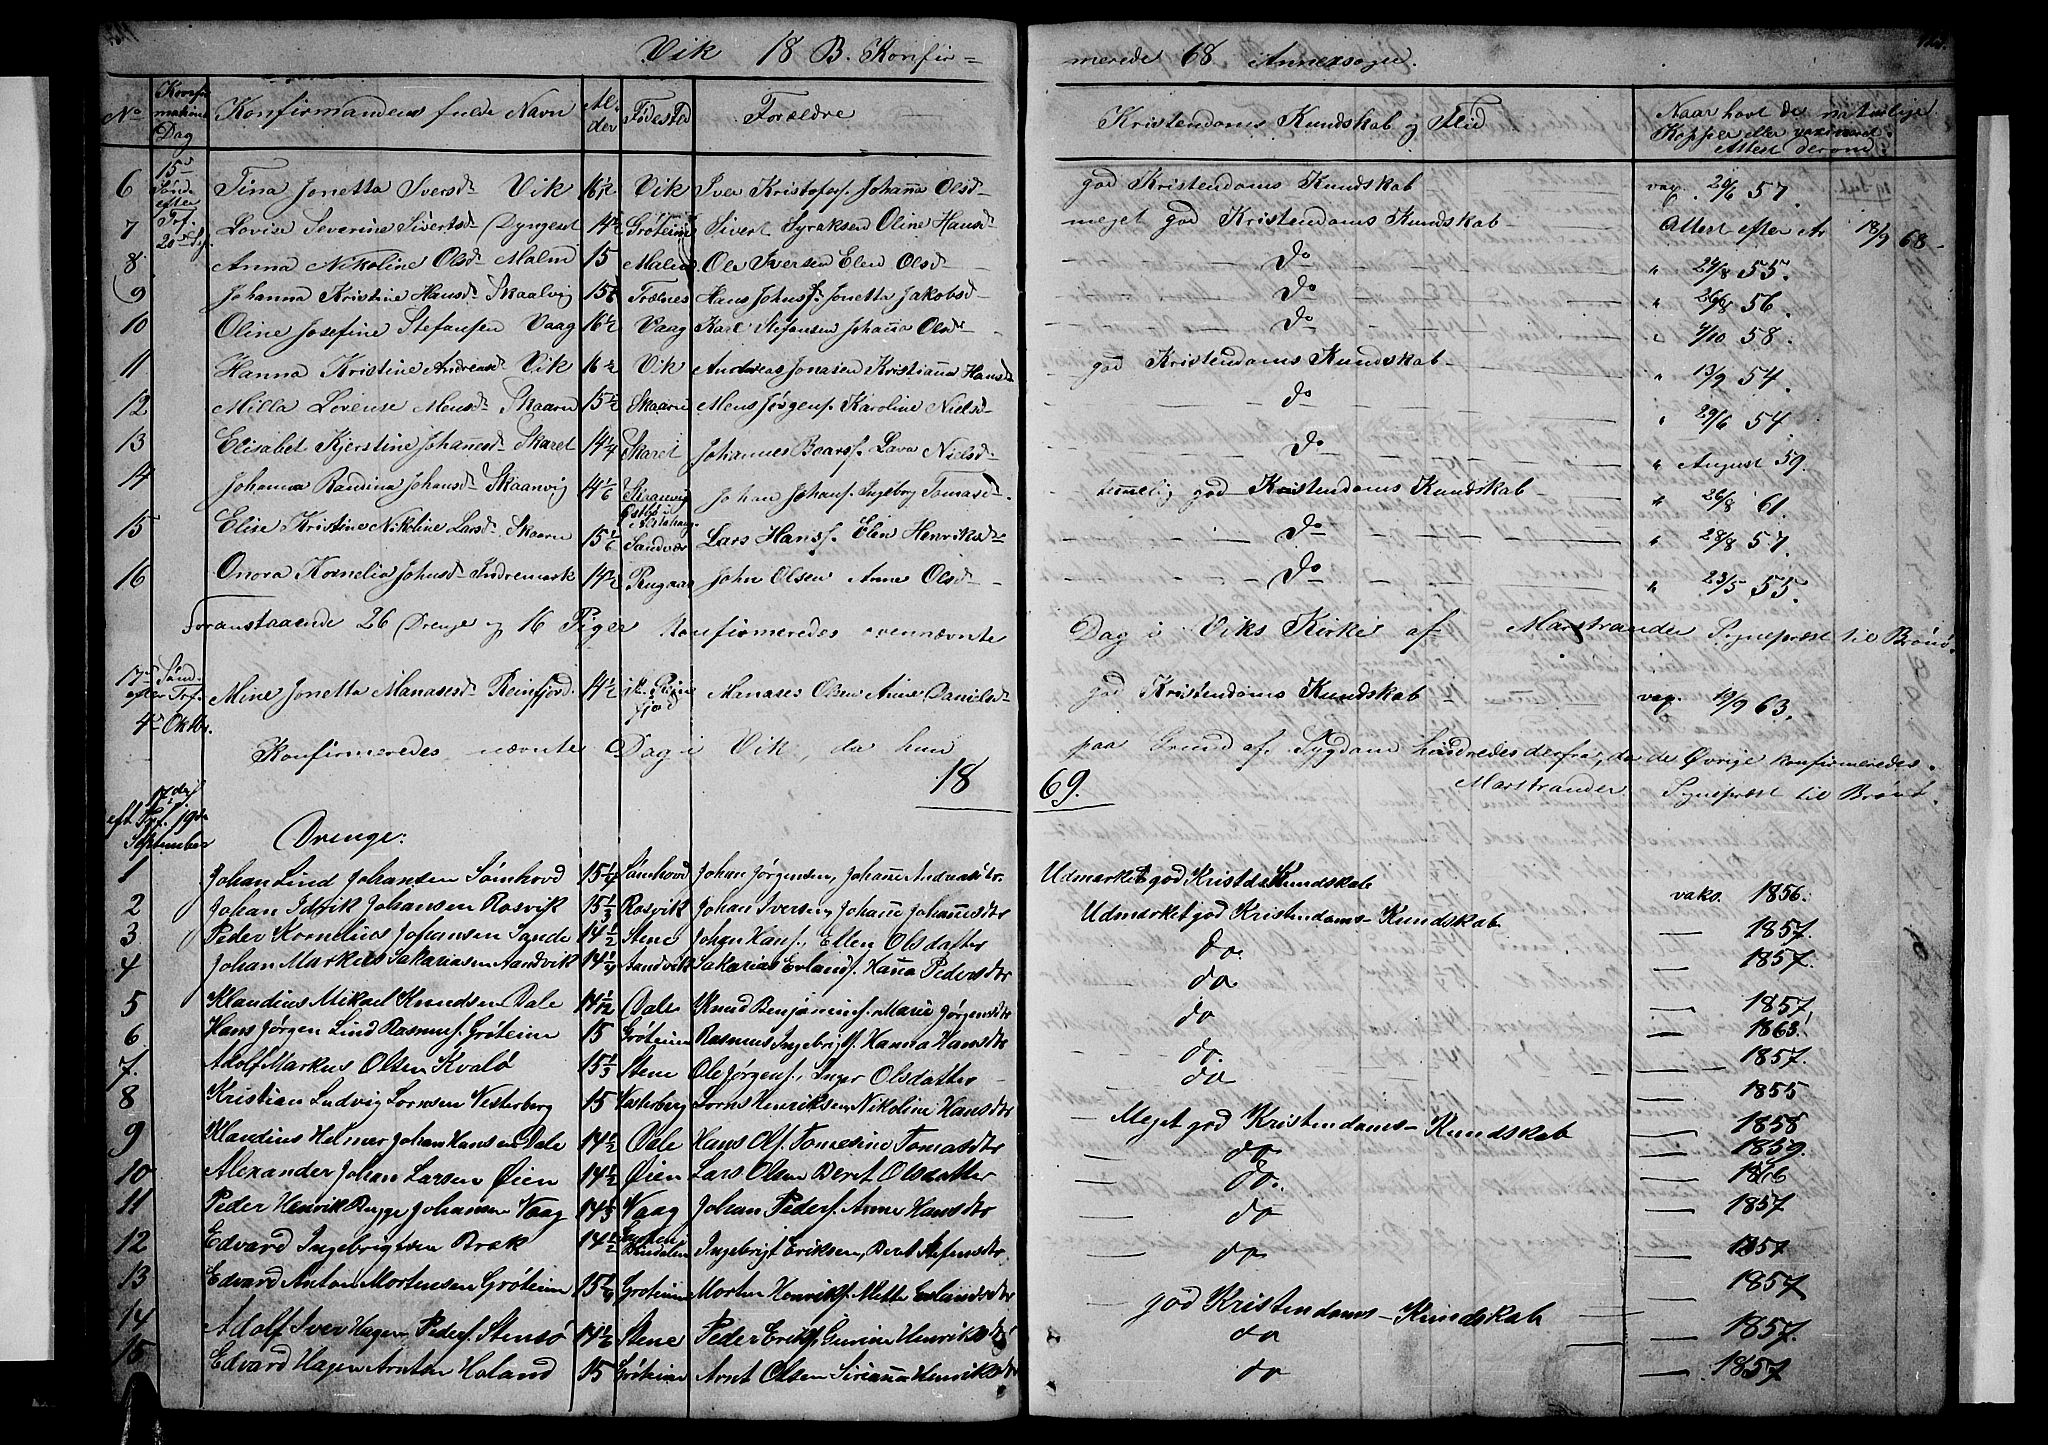 Vik 18 B. Konfir= merede 68 Annexsogn.
No Konfirmations Dag Konfirmandens fulde Navn Alder Fødested Forældre Kristendoms Kundskab og Flid Naar havt de naturlige Kopper eller vaxineret Attest derom
15de Sønd. efter Trf. 20de Sep.
6 Tina Jonetta Iversd. Vik 16 1/2 Vik Iver Kristofers. Johaña Olsd. god Kristendoms Kundskab vax. 57.
7 Lovise Severine Siverts d. Dyngest 14 1/2 Gröteim Sivert Syraksen Oline Hansd. meget god Kristendoms Kundskab Attest efter 18/9 68
8 Anna Nikoline Olsd. Malm 15 Malm Ole Iversen Elen Olsd. Do " 24/8 55.
9 Johanna Kristine Hansd. Skaalvig 15 Trælnes Hans Johns. Jonetta Jakobsd. Do " 26/8 56.
10 Oline Josefine Stefansen Vaag 16 1/2 Vaag Karl Stefansen Johaña Olsd. Do " 4/10 58.
11 Hanna Kristine Andreasd. Vik 16 1/2 Vik Andreas Jonasen Kristiana Hansd. god Kristendoms Kundskab " 13/9 54.
12 Milla Lovense Mensd. Skaarn 15 1/2 Skaarn Mens Jørgens. Karoline Nielsd. Do " 29/6 54
13 Elisabet Kjerstine Johañesd. Skaret 14 1/4 Skaret Johannes Baars. Lava Nielsd. Do " August 59.
14 Johanna Randina Johansd. Skaanvig 14 1/6 Johan Johans. Ingeborg Tomasd. temelig god Kristendoms Kundskab " 26/8 61.
15 Elise Kristine Nikoline Larsd. Skaarn 15 1/6 Sandvær Lars Hans. Elen Henriksd. Do " 28/8 57.
16 Onora Kornelia Johnsd. Indremark 14 1/2 Rugaas John Olsen Anne Olsd. Do " 23/5 55.
Foranstaaende 26 Drenge og 16 Piger Konfirmeredes ovennævnte Dag i Viks Kirke af Marstrander Sognepræst til Brönö.
17de Sønd. efter Trf. 4de Oktbr. Mine Jonetta Manasesd. Reinfjord 14 1/2 Manases Olsen Añe Danielsd. god Kristendoms Kundskab vax. 19/9 63.
Konfirmeredes nævnte Dag i Vik, da hun paa Grund af Sygdom hindredes derfra, da de Øvrige konfirmeredes.
Marstrander Sognepræst til Brönö.
18 69.
17de Sønd. eft. Trf. 19de September Drenge:
1 Johan Lind Johansen Sömhovd 15 1/4 Sömhovd Johan Jørgensen, Johañe Andreasdtr. Udmærket god Kristd. Kundskab vaks. 1856.
2 Johan Idrik Johansen Rosvik 15 1/3 Rosvik Johan Iversen, Johañe Johañesdtr Udmærket god Kristendoms-Kundskab — 1857.
3 Peder Kornelius Johansen Sande 14 1/2 Stene Johan Hans., Ellen Olsdatter do — 1857.
4 Johan Markus Sakariasen Sandvik 14 1/4 Sandvik Sakarias Erlands. Haña Pedersdtr do
5 Klaudius Mikael Knudsen Dale 14 1/12 Dale Knud Benjamins. Marie Jørgensdtr do — 1857
6 Hans Jørgen Lind Rasmus. Gröteim 15 Gröteim Rasmus Ingebrigts. Hanna Hansdtr do. — 1863
7. Adolf Markus Olsen Kvalö 15 1/3 Stene Ole Jørgens., Inger Olsdatter do — 1857.
8 Kristian Ludvig Lornsen Vesterberg 15 Vesterberg Lorns Henriksen, Nikoline Hansdtr Meget god Kristendoms-Kundskab — 1855
9 Klaudius Helmer Johan Hansen Dale 14 1/2 Dale Hans Ols. Tomesine Tomasdtr do — 1858
10 Alexander Johan Larsen Øien 14 1/2 Øien Lars Olsen Beret Olsdatter do. — 1859.
11 Peder Henrik Rugge Johansen Vaag 14 1/3 Vaag Johan Peders. Anne Hansdtr do — 1857
12 Edvard Ingebrigtsen Bræk 14 1/2 Bindalen Ingebrigt Eriksen, Beret do — 1857
13 Edvard Anton Mortensen Gröteim 15 1/4 Gröteim Morten Henriks. Mette Erlandsdtr god Kristendoms-Kundskab — 1857
14 Adolf Iver Hagen Peders. Stensö 14 1/6 Stene Peder Eriks. Gurine Henriksdtr do — 1857.
15 Edvard Hagen Arntsen Holand 15 Gröteim Arnt Olsen Siriaña Henriksdtr do — 1857